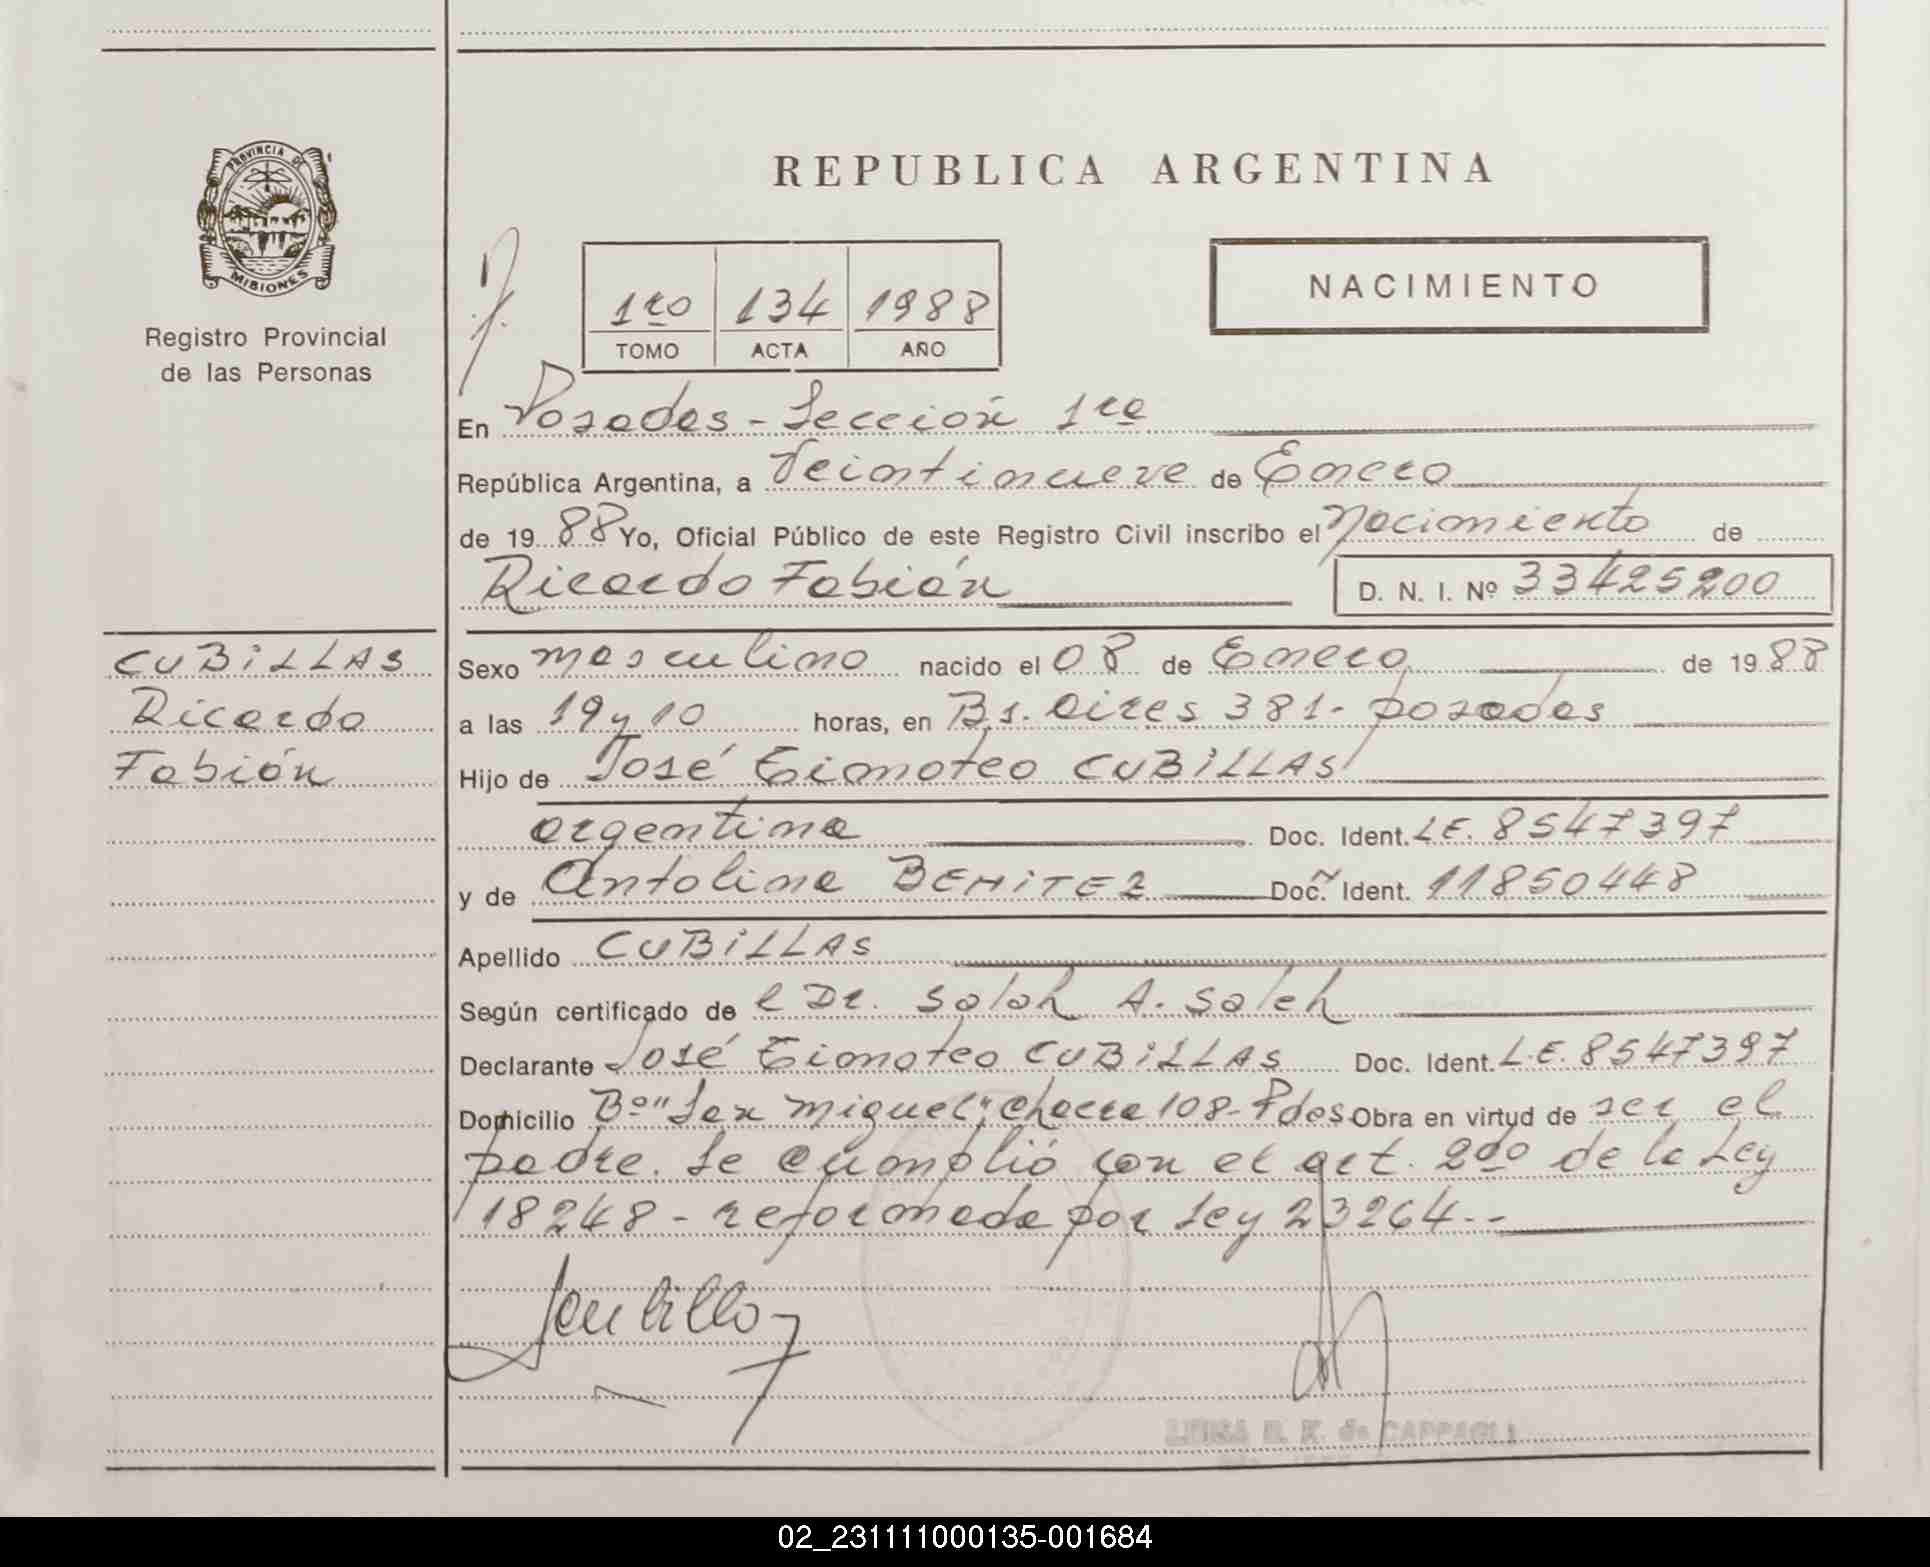 PROVINCIA DE
MISIONES
Registro Provincial
de las Personas
REPUBLICA ARGENTINA
1ro 134 1988
TOMO ACTA AÑO
NACIMIENTO
En Posadas - Sección 1ra
República Argentina, a Veintinueve de Enero
de 19 88 Yo, Oficial Público de este Registro Civil inscribo el Nacimiento de
Ricardo Fabián D. N. I. Nº 33425200
CUBILLAS
Ricardo
Fabián
Sexo masculino nacido el 08 de Enero de 19 88
a las 19 y 10 horas, en Bs. Aires 381 - posadas
Hijo de José Timoteo CUBILLAS
argentina Doc. Ident. L.E. 8547397
y de Antolina BENITEZ Doc. Ident. 11850448
Apellido CUBILLAS
Según certificado de l Dr. Salah A. Saleh
Declarante José Timoteo CUBILLAS Doc. Ident. L.E. 8547397
Domicilio Bº "San Miguel", Chacra 108 - Pdas Obra en virtud de ser el
padre. Se cumplió con el art. 2do de la Ley
18248 - reformada por Ley 23264 --
LUISA B. K. de CAPPAGLI
02_231111000135-001684